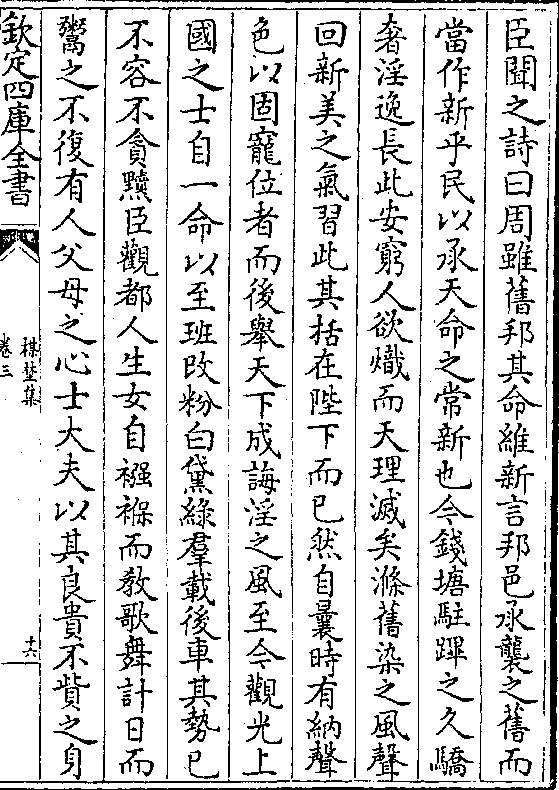 臣聞之詩曰周雖舊邦其命維新言邦邑承襲之舊而
當作新乎民以承天命之常新也今錢塘駐蹕之久驕
奢淫逸長此安窮人欲熾而天理滅矣滌舊染之風聲
回新美之氣習此其括在陛下而已然自曩時有納聲
色以固寵位者而後舉天下成誨淫之風至今觀光上
國之士自一命以至班改粉白黛綠羣載後車其勢已
不容不貪黷臣觀都人生女自襁褓而教歌舞計日而
鬻之不復有人父母之心士大夫以其良貴不貲之身
欽定四庫全書
楳埜集
卷三
十六